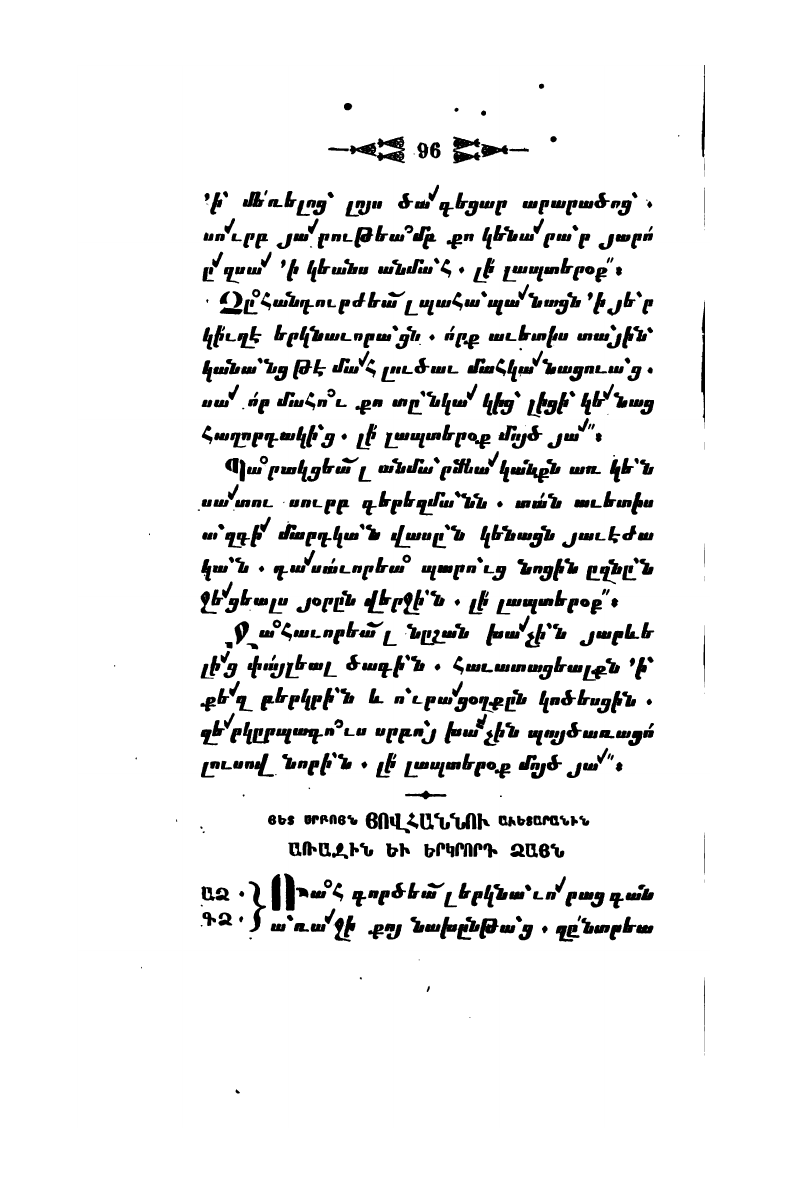 96
’ի՝ մե՛ռելոց՝ լոյս ծա՜գեցար արարածոց՝ .
սո՜ւրբ յա՜րութեա՞մբ քո կենա՜րա՝ր յարո՛
ը՜զսա՜ ’ի կեանս անմա՝հ . լի՛ լապտերօք՛՛ ։
Զը՞հանդուրժեա՜լ պահա՝պա՜նացն ’ի յե՝ր
կիւղէ երկնաւորա՝ցն . ո՛րք աւետիս տա՝յին՝
կանա՝նց թէ մա՜հ լուծաւ մահկա՜նացուա՝ց .
սա՜ ո՛ր մահո՞ւ քո տը՝նկա՜կից՝ լիցի՝ կե՜նաց
հաղորդակի՝ց . լի՛ լապտերօք մոյծ յա՜՛՛ ։
Պա՞րակցեա՜լ անմա՝րմնա՜կանքն առ կե՝ն
սա՜տու սուրբ գերեզմա՝նն . տա՛ն աւետիս
ա՝զգի՜ մարդկա՝ն վասը՝ն կենացն յաւէժա
կա՝ն . գա՜սա՛ւորեա՞ պարո՝ւց նոցին ըզնը՝ն
ջե՜ցեալս յօրըն վերջի՝ն . լի՛ լապտերօք՛՛ ։
Ահա՞ւորեա՜լ նըշան խա՜չի՝ն յարևե
լի՜ց փա՛յլեալ ծագի՝ն . հաւատացեալքն ’ի՝
քե՜զ բերկրի՝ն և ո՝ւրա՜ցօղքըն կոծեսցին .
զե՜րկըրպագո՞ւս սրբո՝յ խա՜չին պայծառացո՛
լուսով նորի՝ն . լի՛ լապտերօք մոյծ յա՜՛՛ ։
ՅԵՏ ՍՐԲՈՅՆ ՅՈՎՀԱՆՆՈՒ ԱՒԵՏԱՐԱՆԻՆ
ԱՌԱՋԻՆ ԵՒ ԵՐԿՐՈՐԴ ՁԱՅՆ
ԱՁ . Պա՞հ գործեա՜լ երկնա՝ւո՜րաց գան
ԳՁ . ա՝ռա՜ջի քոյ նախընթա՝ց . զը՛նտրեա